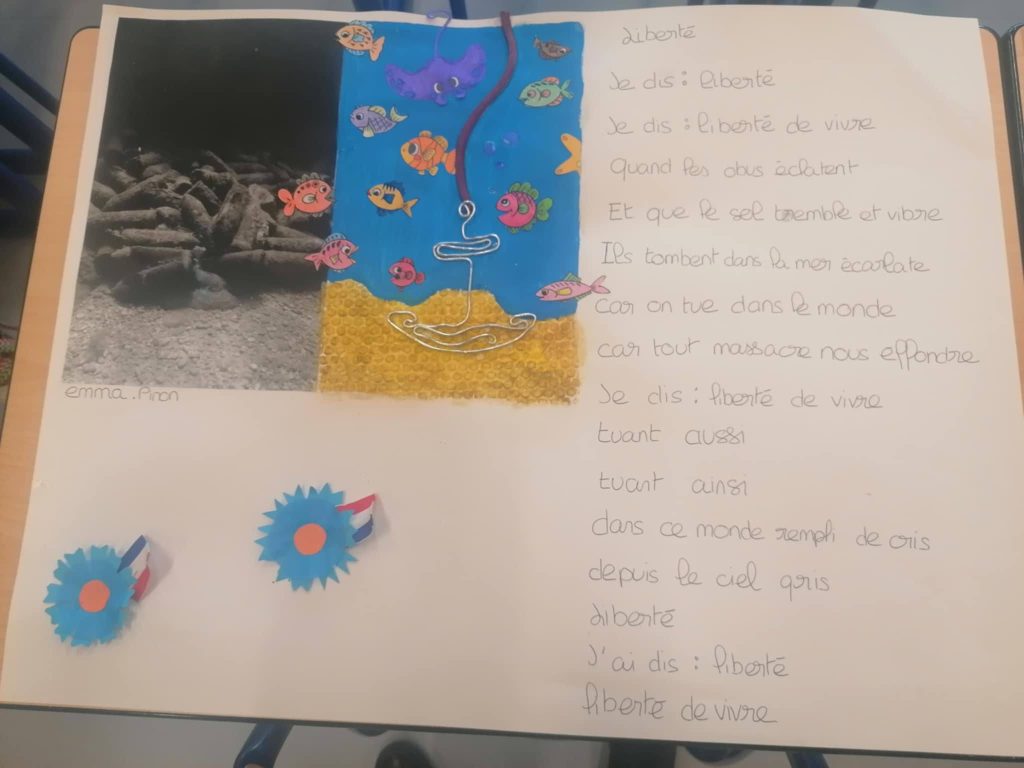 Liberté
Je dis : liberté
Je dis : liberté de vivre
Quand les obus éclatent
Et que le sel tremble et vibre
Ils tombent dans la mer écarlate
car on tue dans le monde
car tout massacre nous effondre
Je dis : liberté de vivre
tuant aussi
tuant ainsi
dans ce monde rempli de cris
depuis le ciel gris
Liberté
J'ai dis : liberté
liberté de vivre
emma. Piron